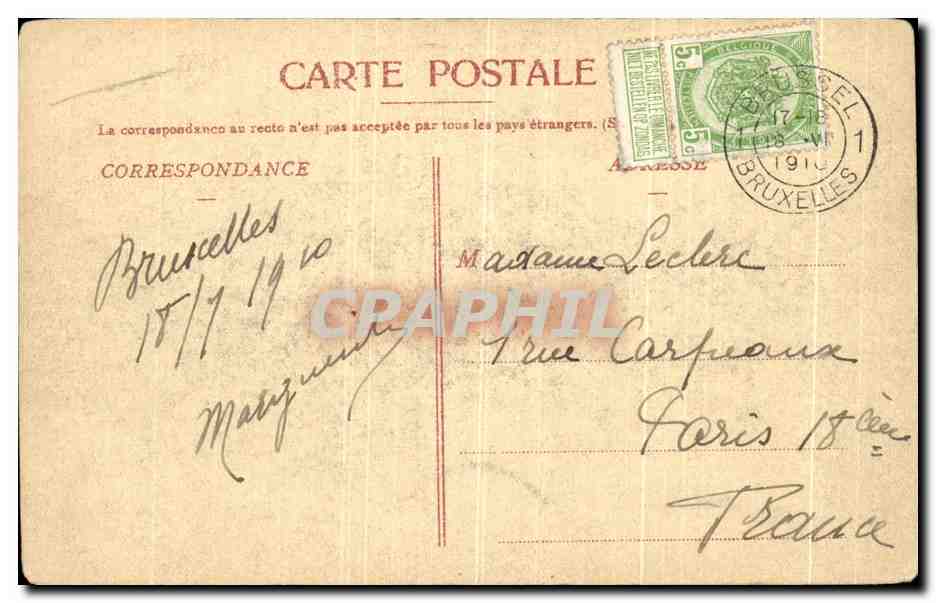 CARTE POSTALE
La correspondance au recto n'est pas acceptée par tous les pays étrangers. (S
CORRESPONDANCE
ADRESSE
BELGIQUE
5c
5c
NE PAS LIVRER LE DIMANCHE
NIET BESTELLEN OP ZONDAG
BRUSSEL 1
17-18
18 VII
1910
BRUXELLES
Bruxelles
18/7 1910
Marguerite
Madame Leclerc
1 rue Carpeaux
Paris 18ème
France
CPAPHIL